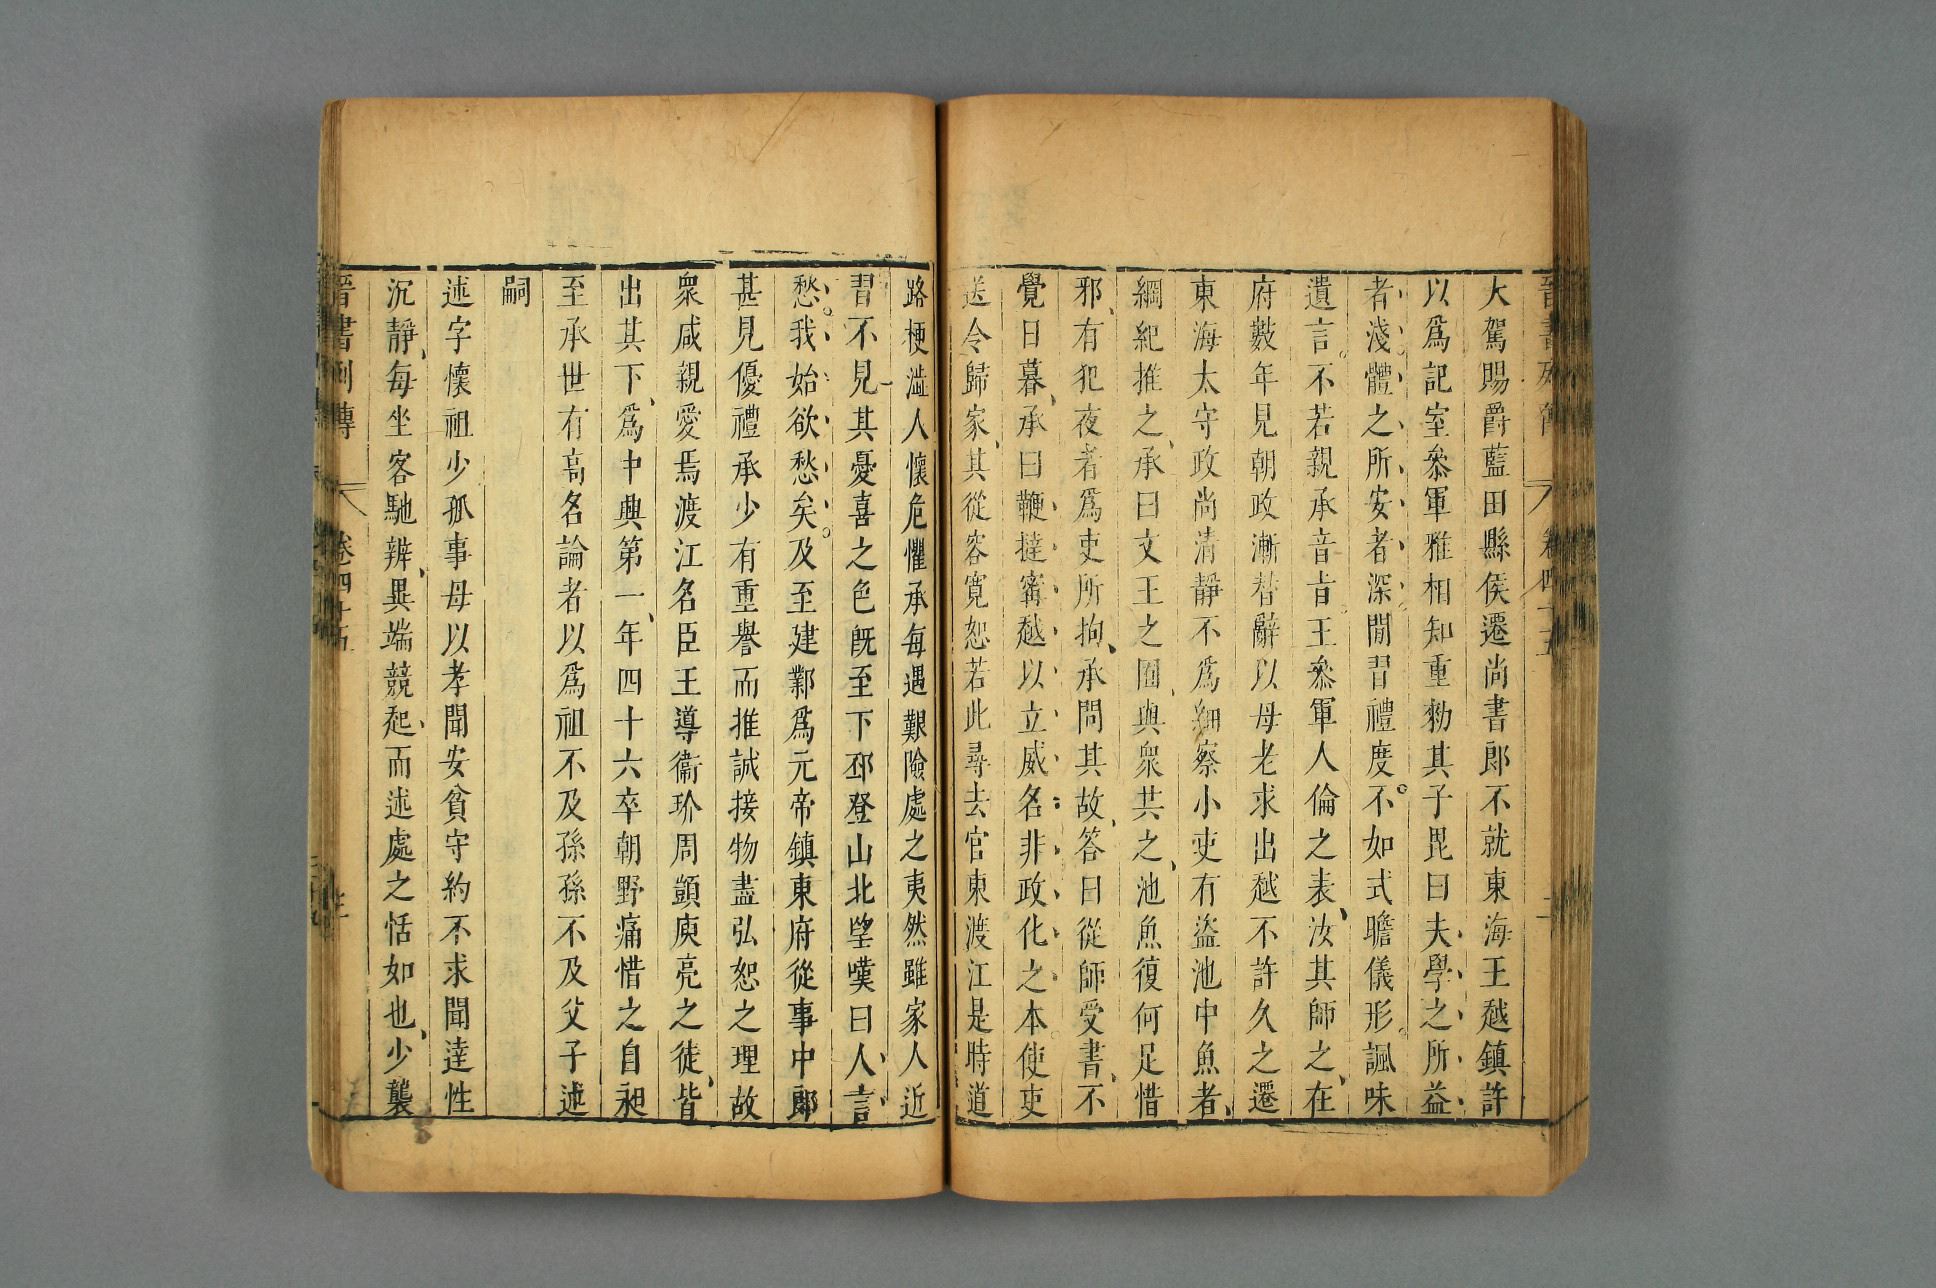 大駕賜爵藍田縣侯遷尚書郎不就東海王越鎮許
以爲記室叅軍雅相知重勑其子毘曰夫學之所益
者淺體之所安者深閒習禮度不如式瞻儀形諷味
遺言不若親承音㫖王叅軍人倫之表汝其師之在
府數年見朝政漸替辭以母老求出越不許久之遷
東海太守政尚清靜不爲細察小吏有盜池中魚者
綱紀推之承曰文王之囿與衆共之池魚復何足惜
邪有犯夜者爲吏所拘承問其故答曰從師受書不
覺日暮承曰鞭撻甯越以立威名非政化之本使吏
送令歸家其從容寬恕若此尋去官東渡江是時道
路梗澁人懷危懼承每遇艱險處之夷然雖家人近
習不見其憂喜之色旣至下邳登山北望嘆曰人言
愁我始欲愁矣及至建鄴爲元帝鎮東府從事中郎
甚見優禮承少有重譽而推誠接物盡弘恕之理故
衆咸親愛焉渡江名臣王導衞玠周顗庾亮之徒皆
出其下爲中興第一年四十六卒朝野痛惜之自昶
至承世有高名論者以爲祖不及孫孫不及父子述
嗣
述字懷祖少孤事母以孝聞安貧守約不求聞達性
沉靜每坐客馳辨異端競起而述處之恬如也少襲
晉書列傳 卷四十五